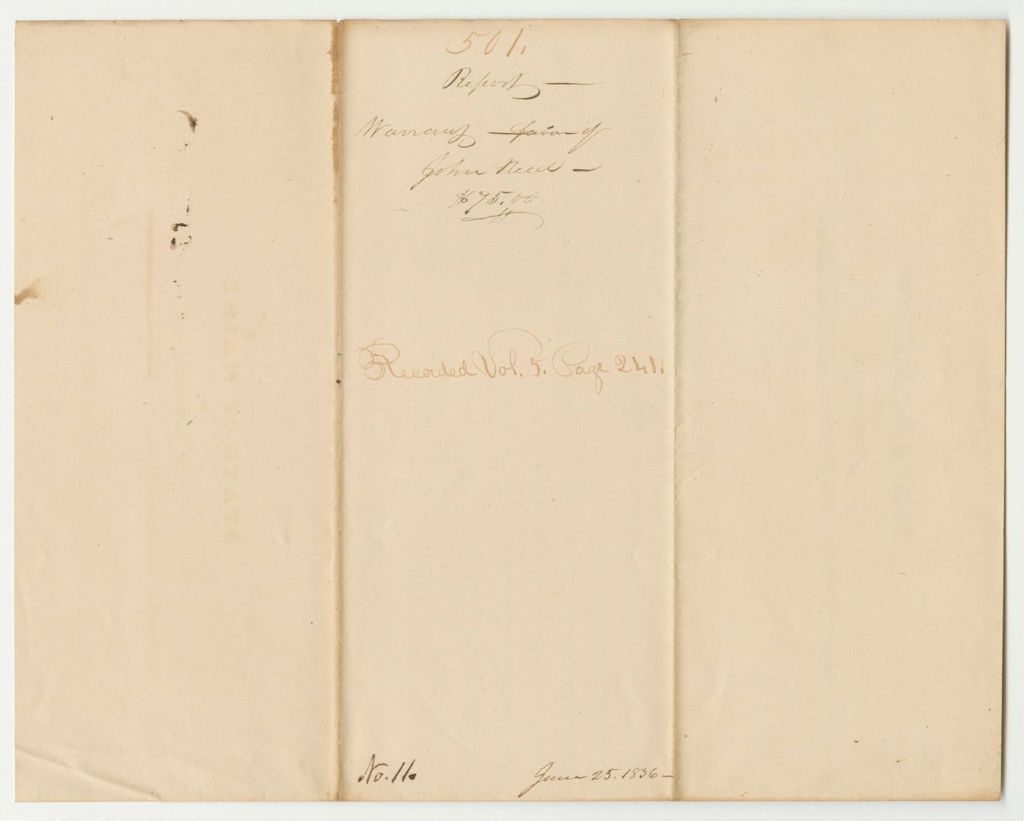 501.
Report —
Warrant — favor of
John Reed —
$75.00
Recorded Vol. 5. Page 241.
No. 11.
June 25. 1836 —